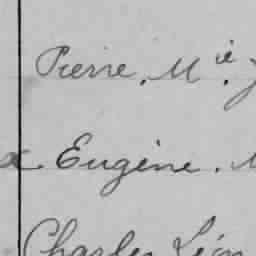 Pierre. Mie.
Eugène.
Charles Léon